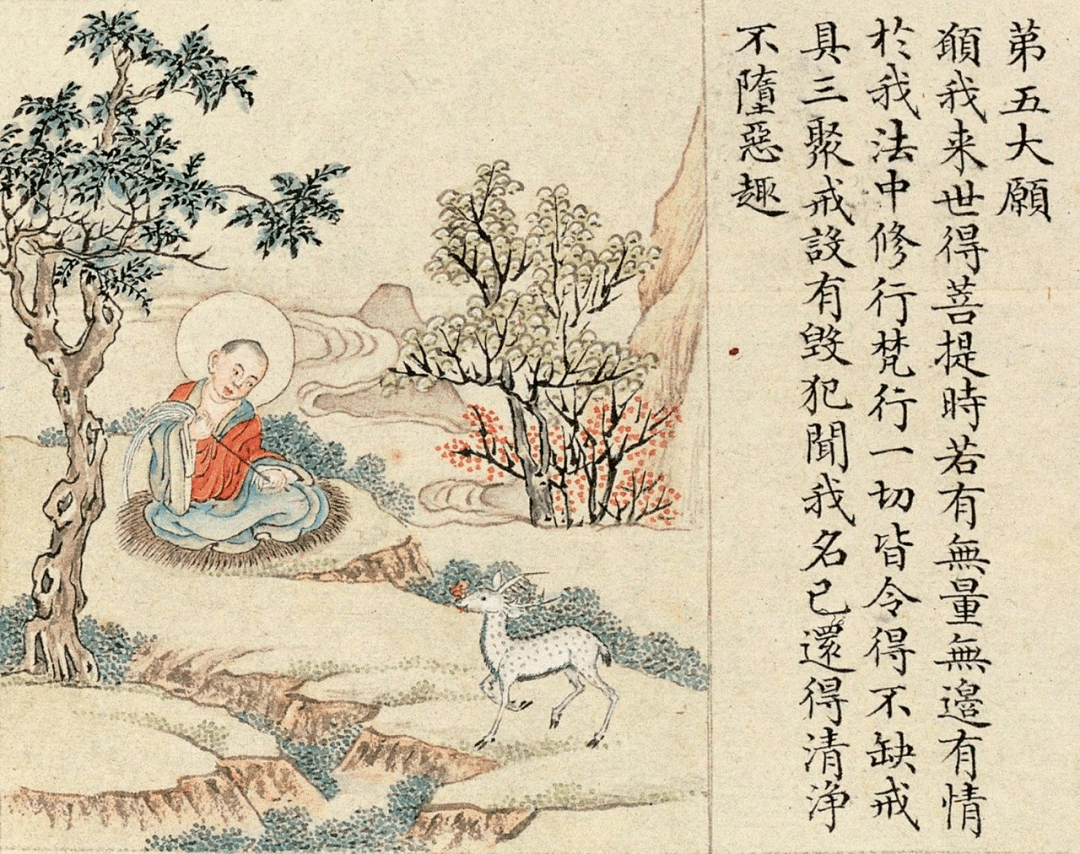 第五大願
願我来世得菩提時若有無量無邊有情
於我法中修行梵行一切皆令得不缺戒
具三聚戒設有毀犯聞我名已還得清淨
不墮惡趣